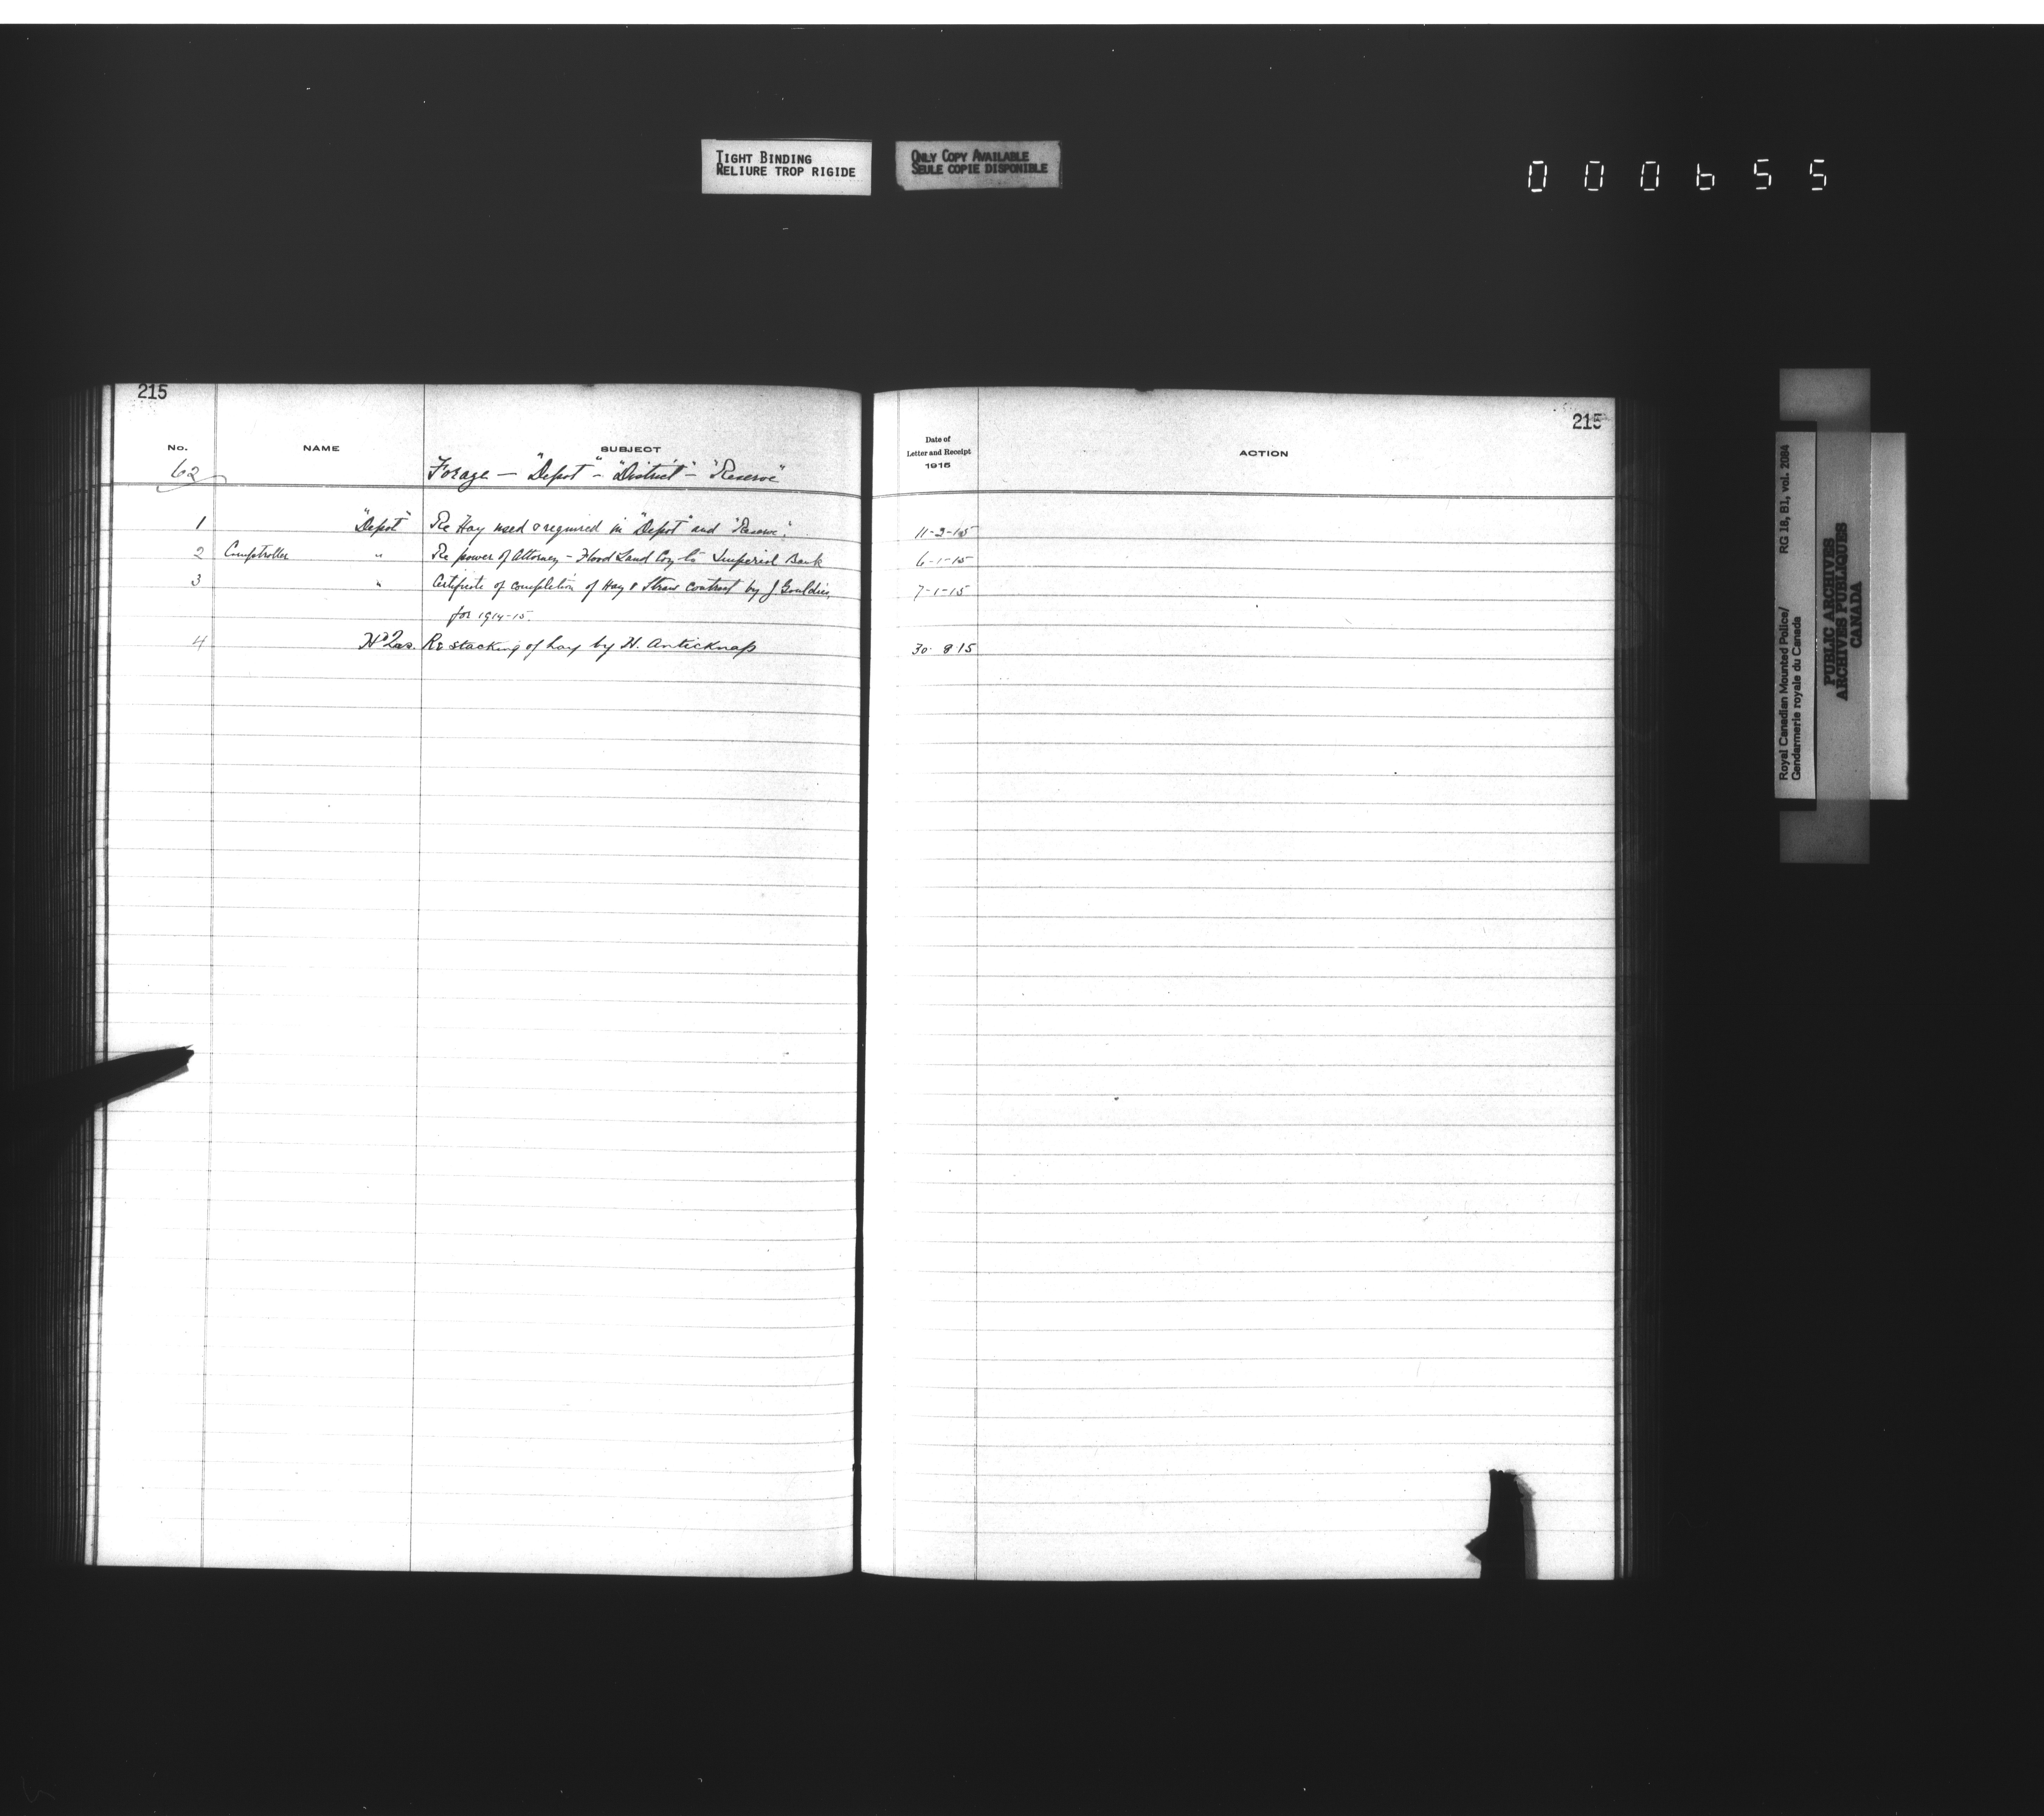 TIGHT BINDING
RELIURE TROP RIGIDE
ONLY COPY AVAILABLE
SEULE COPIE DISPONIBLE
000655
215
No. NAME SUBJECT
62 Forage — "Depot" - "District" - "Reserve"
1 "Depot" Re Hay used & required in "Depot" and "Reserve".
2 Comptroller " Re power of Attorney - Flood Land Coy to Imperial Bank
3 " Certificate of completion of Hay & Straw contract by J Gouldie
for 1914-15.
4 Hd Qrs. Re stacking of hay by H. Anticknap
215
Date of
Letter and Receipt
1915
ACTION
11-3-15
6-1-15
7-1-15
30-8-15
Royal Canadian Mounted Police/ RG 18, B1, vol. 2084
Gendarmerie royale du Canada
PUBLIC ARCHIVES
ARCHIVES PUBLIQUES
CANADA